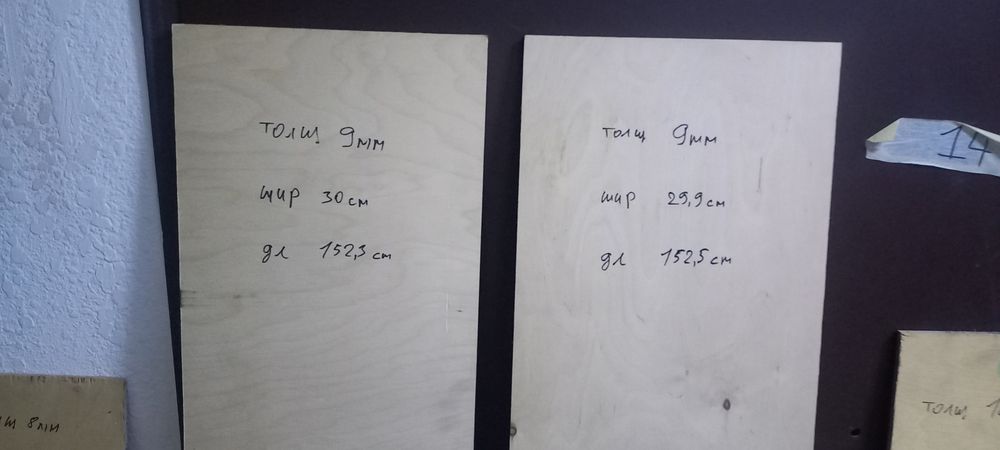 толщ 9мм
шир 30 см
дл 152,3 см
толщ 9мм
шир 29,9 см
дл 152,5 см
14
8мм
толщ